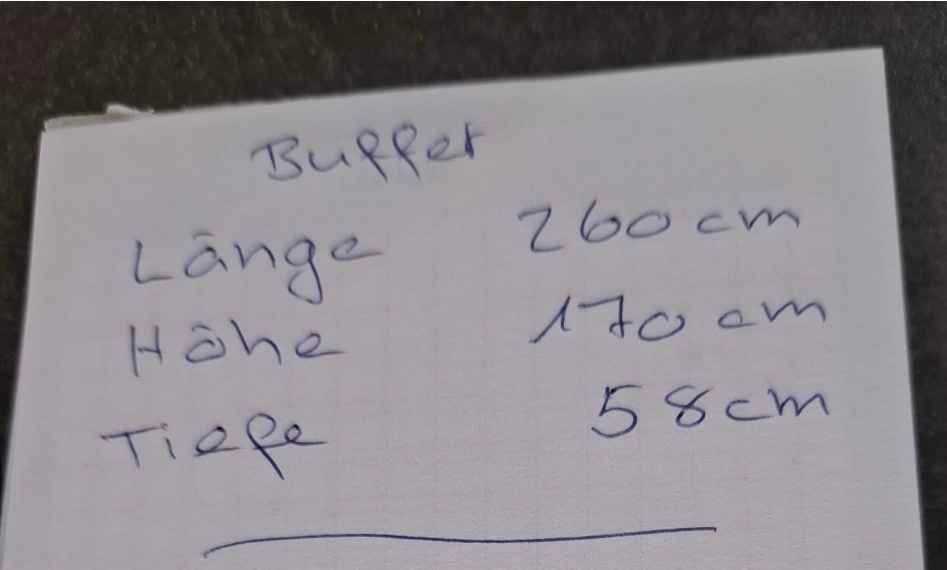 Buffet
Länge 260 cm
Höhe 170 cm
Tiefe 58 cm